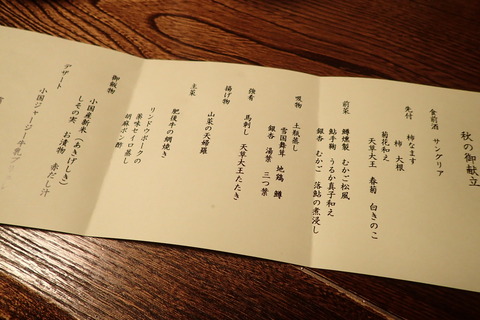 秋の御献立
食前酒 サングリア
先付 柿なます
柿 大根
菊花和え
天草大王 春菊 白きのこ
前菜 鱒燻製 むかご松風
鮎手鞠 うるか真子和え
銀杏 むかご 落鮎の煮浸し
吸物 土瓶蒸し
雪国舞茸 地鶏 鱒
銀杏 湯葉 三つ葉
強肴 馬刺し 天草大王たたき
揚げ物 山菜の天婦羅
主菜 肥後牛の朔焼き
リンドウポークの
薬味セイロ蒸し
胡麻ポン酢
御飯物 小国産新米(あきげしき)
しその実 お漬物 赤だし汁
デザート 小国ジャージー牛乳